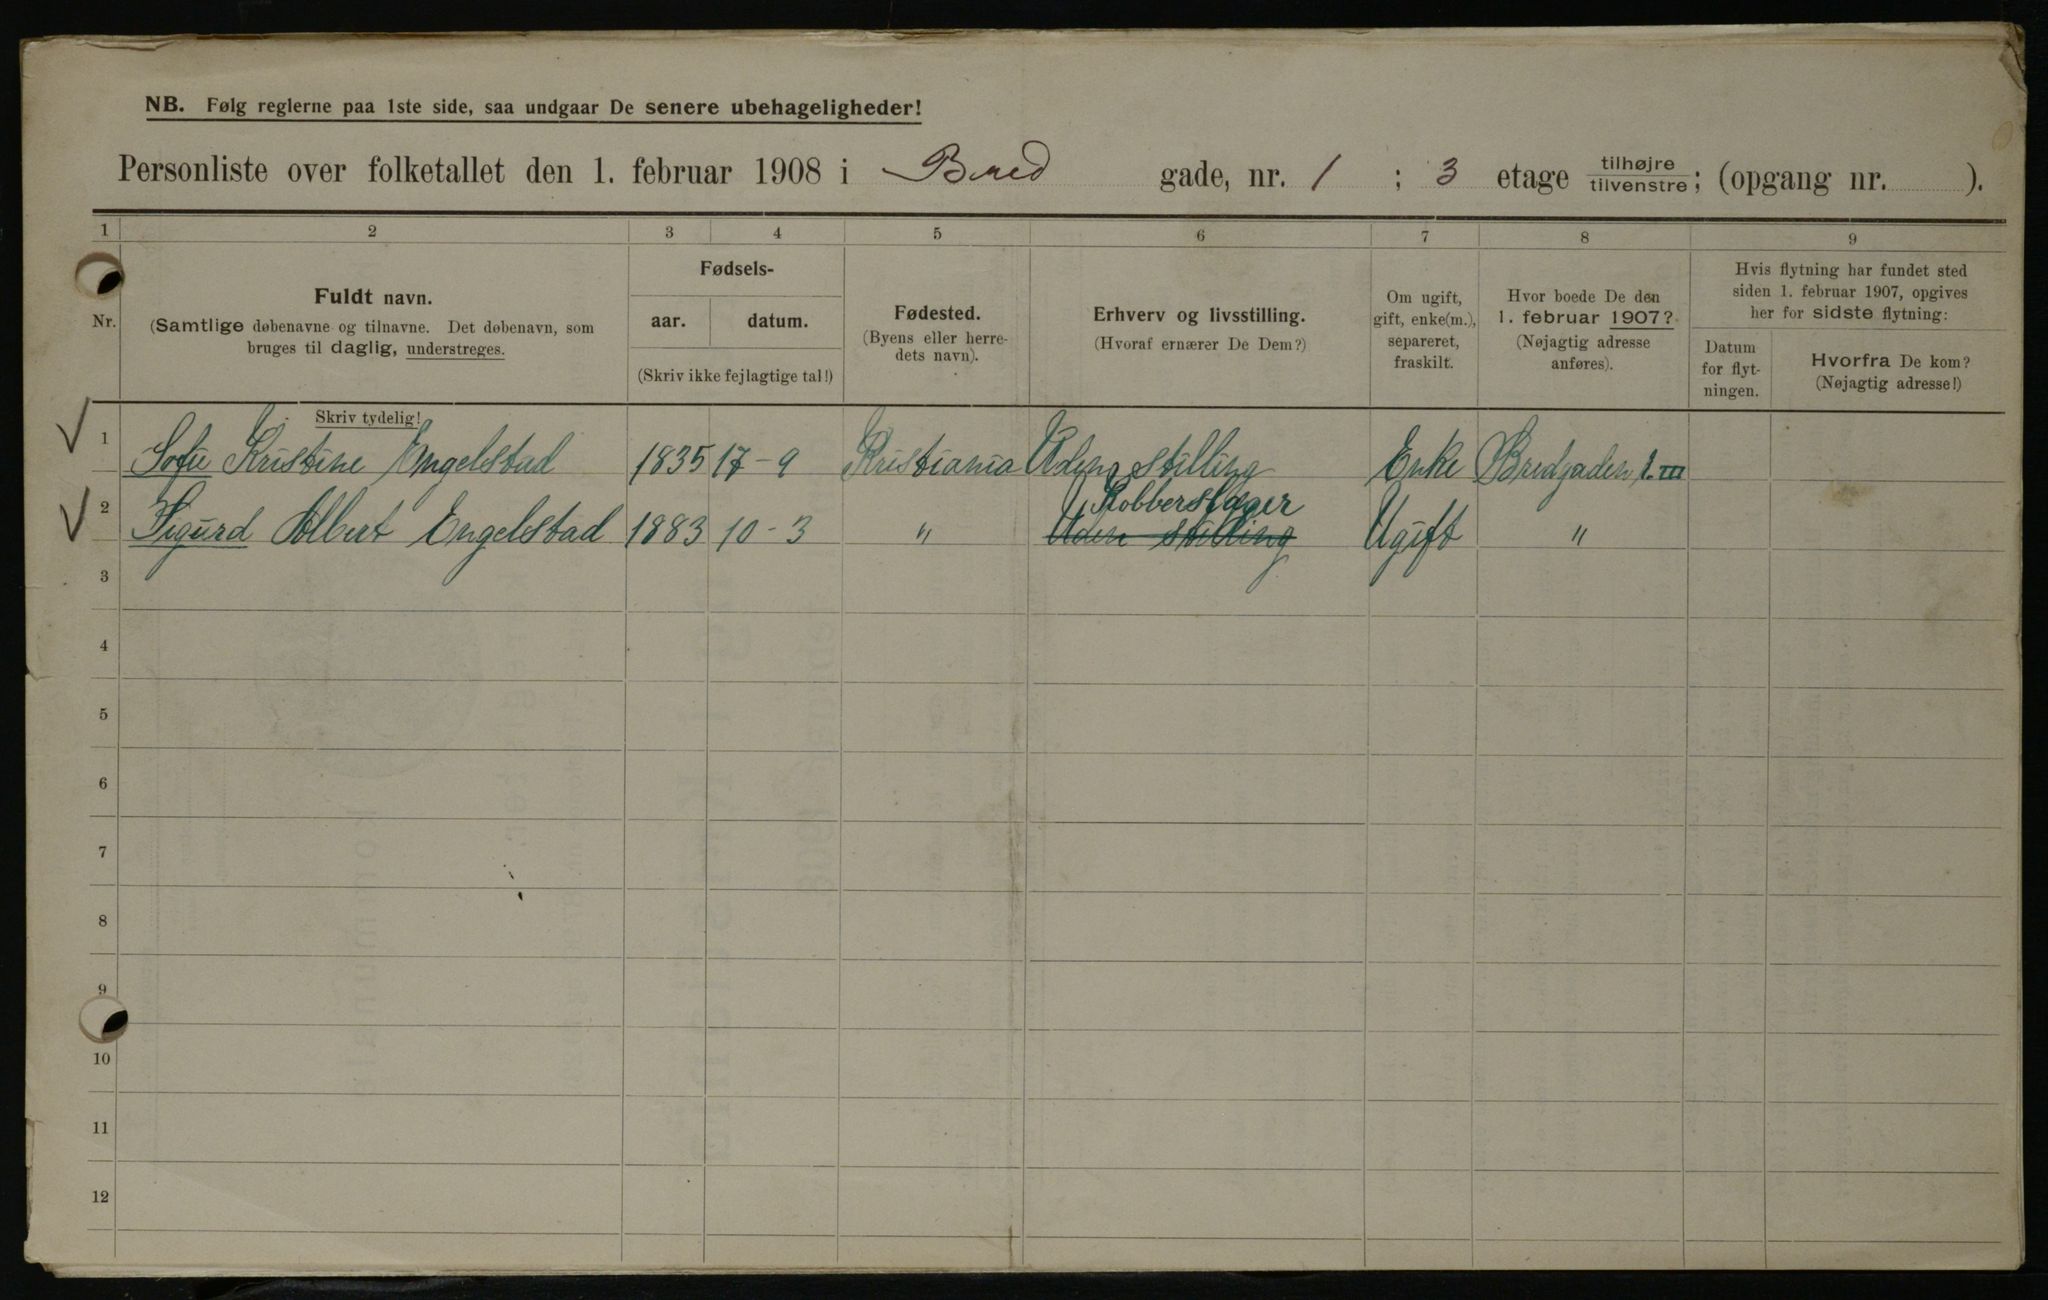 NB. Følg reglerne paa 1ste side, saa undgaar De senere ubehageligheder!
Personliste over folketallet den 1. februar 1908 i Bred gade, nr. 1 ; 3 etage tilhøjre tilvenstre; (opgang nr. ).
1 2 3 4 5 6 7 8 9
Nr.
Fuldt navn.
(Samtlige døbenavne og tilnavne. Det døbenavn, som
bruges til daglig, understreges.
Skriv tydelig!
Fødsels-
aar. datum.
(Skriv ikke fejlagtige tal!)
Fødested.
(Byens eller herre-
dets navn).
Erhverv og livsstilling.
(Hvoraf ernærer De Dem?)
Om ugift,
gift, enke(m.),
separeret,
fraskilt.
Hvor boede De den
1. februar 1907?
(Nøjagtig adresse
anføres).
Hvis flytning har fundet sted
siden 1. februar 1907, opgives
her for sidste flytning:
Datum
for flyt-
ningen.
Hvorfra De kom?
(Nøjagtig adresse!)
1 Sofie Kristine Engelstad 1835 17-9 Kristiania Uden stilling Enke Bredgaden 1. III
Kobberslager
2 Sigurd Albert Engelstad 1883 10-3 " Uden stilling Ugift "
3
4
5
6
7
8
9
10
11
12